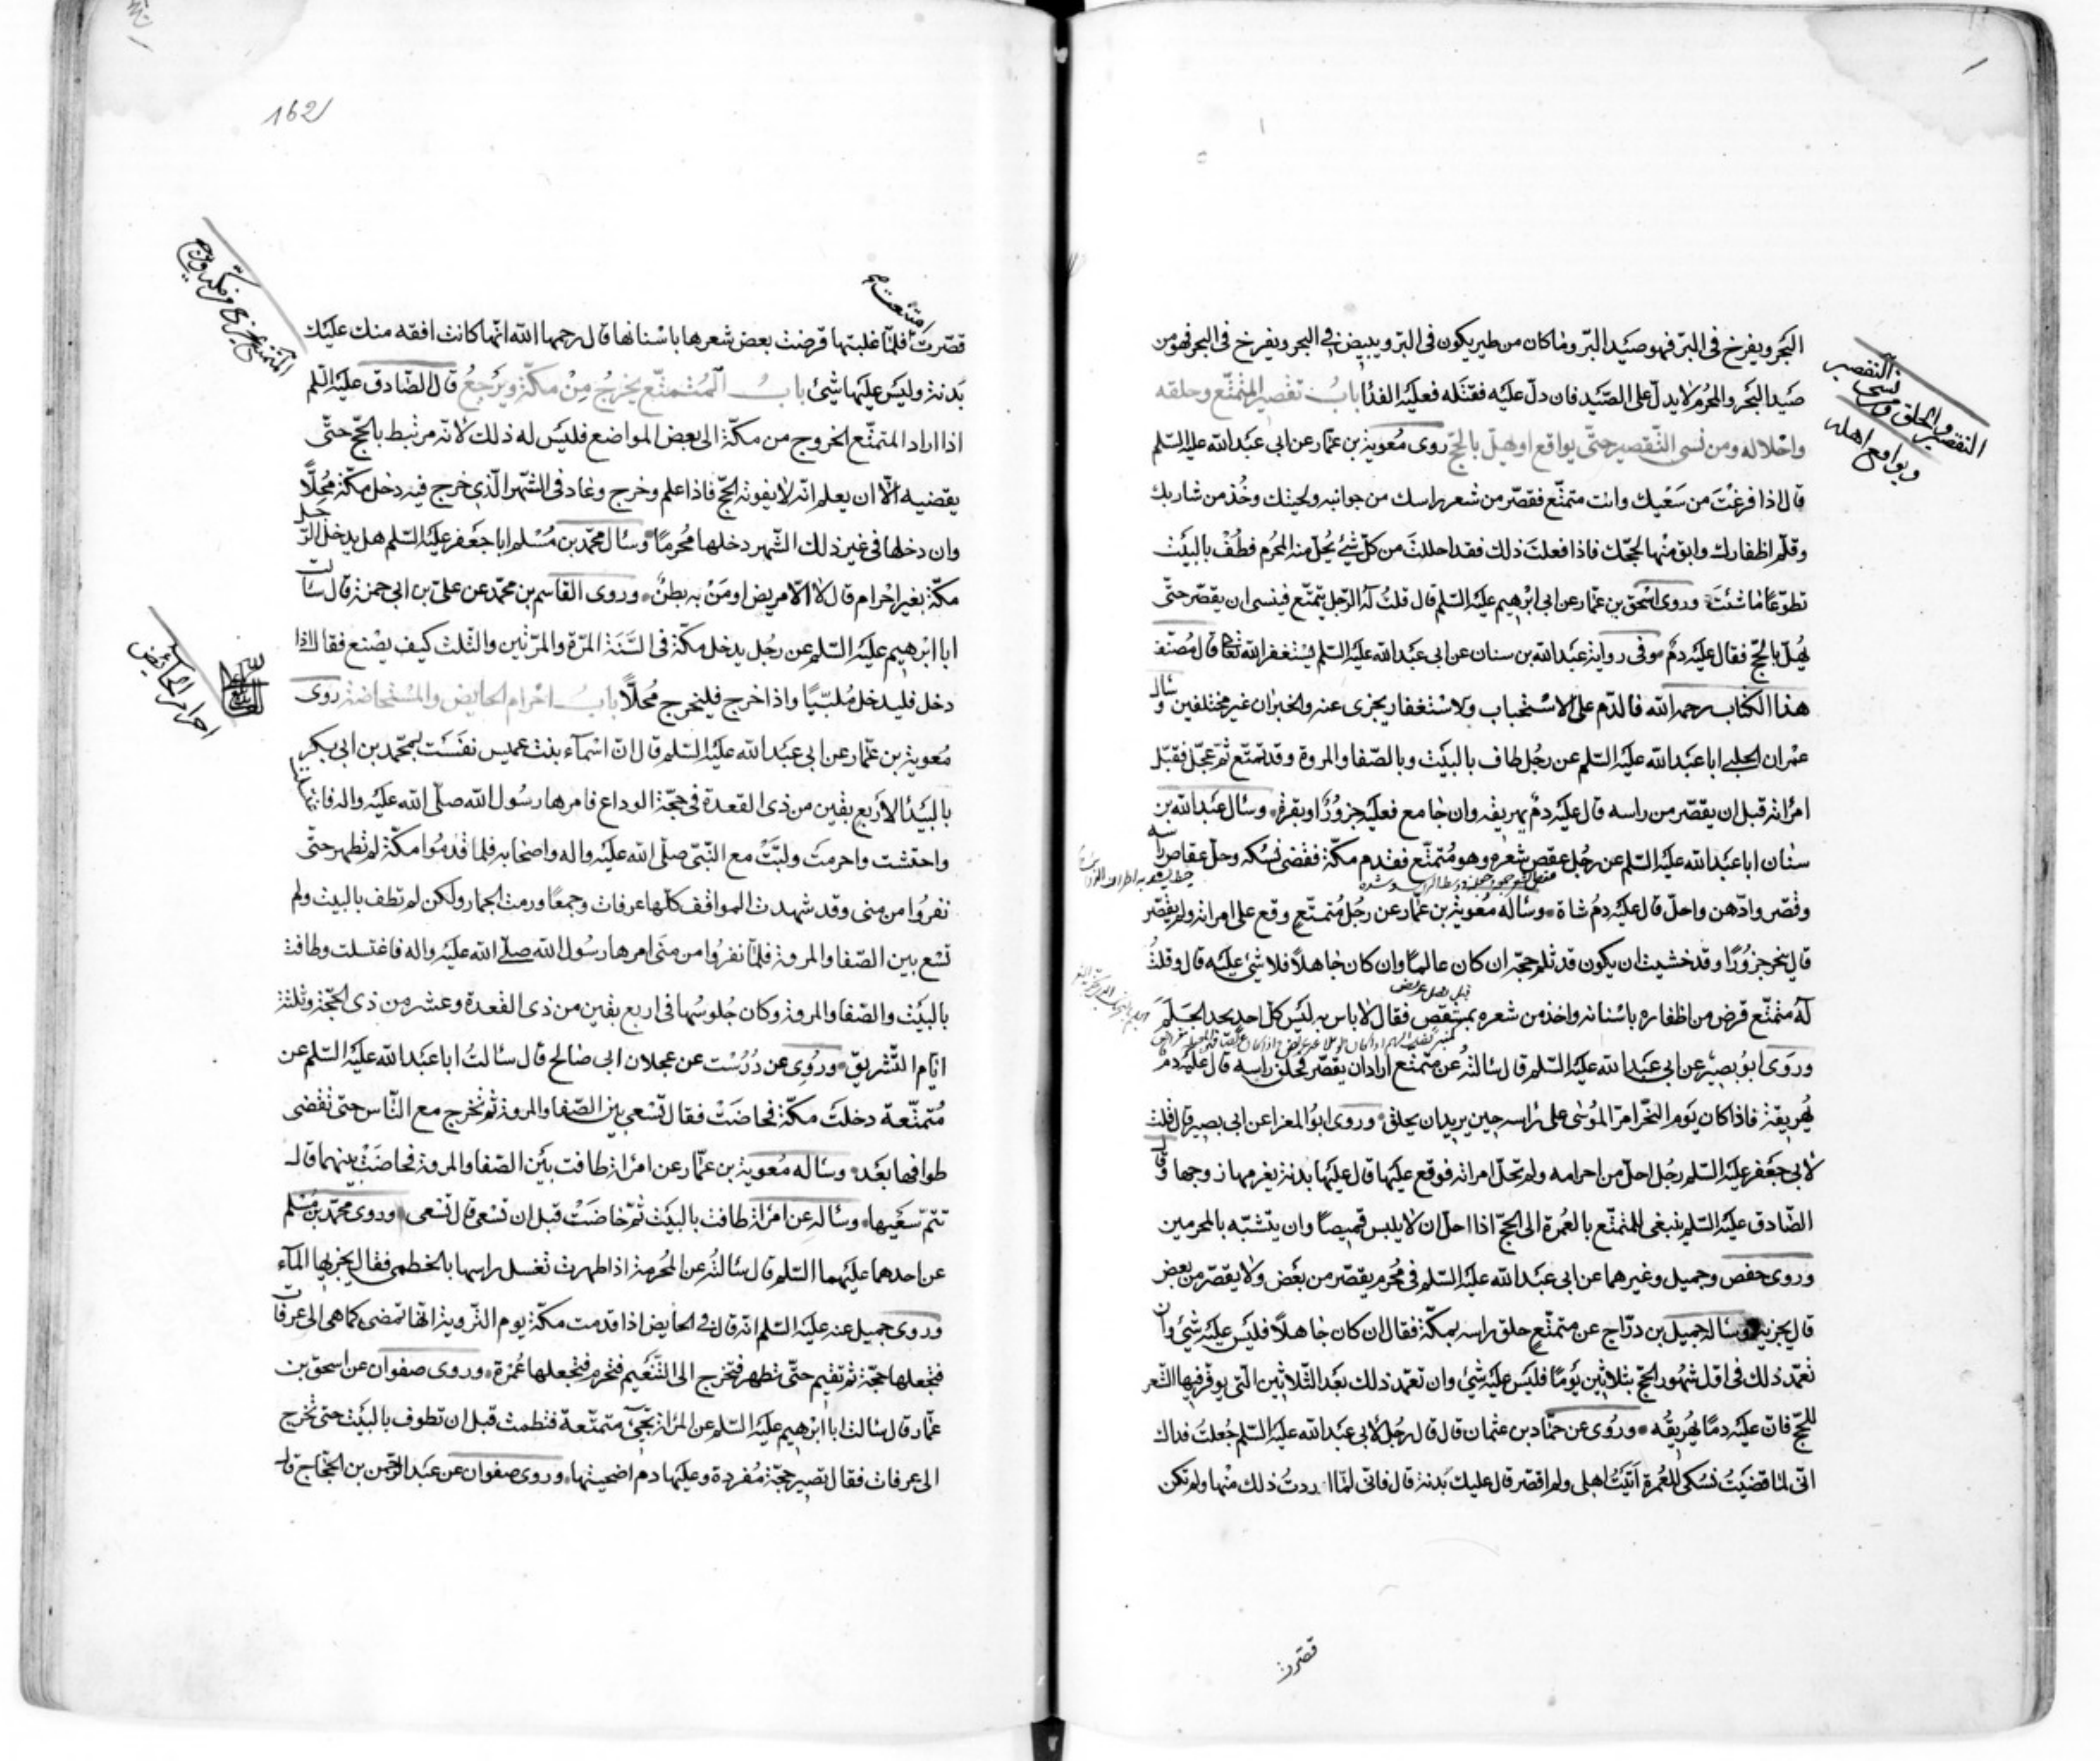 البحر ويفرخ فى البرّ فهو صيد البرّ وما كان من طير يكون فى البرّ ويبيض فى البحر ويفرخ فى البحر فهو من
صيد البحر والمحرم لا يدلّ على الصّيد فان دلّ عليه فقتله فعليه الفدا باب تقصير المتمتّع وحلقه
واحلاله ومن نسى التّقصير حتّى يواقع او يهلّ بالحجّ روى معوية بن عمّار عن ابى عبد الله عليه السّلم
قال اذا فرغت من سعيك وانت متمتّع فقصّر من شعر راسك من جوانبه ولحيتك وخُذ من شاربك
وقلّم اظفارك وابق منها لحجّك فاذا فعلت ذلك فقد احللت من كلّ شئ يُحلّ منه المحرم فطُفْ بالبيت
تطوّعًا ما شئت وروى اسحق بن عمّار عن ابى ابرهيم عليه السّلم قال قلت له الرّجل يتمتّع فينسى ان يقصّر حتّى
يُهلّ بالحجّ فقال عليه دمٌ وفى رواية عبد الله بن سنان عن ابى عبد الله عليه السّلم يستغفر الله تعالى قال مُصنّف
هذا الكتاب رحمه الله فالدّم على الاستحباب والاستغفار يجزى عنه والخبران غير مختلفين وسأل
عمران الحلبى ابا عبد الله عليه السّلم عن رجُل طاف بالبيت وبالصّفا والمروة وقد تمتّع ثمّ عجّل فقبّل
امراته قبل ان يقصّر من راسه قال عليه دمٌ يهريقه وان جامع فعليه جزورٌ او بقرة وسأل عبد الله بن
سنان ابا عبد الله عليه السّلم عن رجُل عقص شعره وهو مُتمتّع فقدم مكّة فقضى نسكه وحلّ عقاص راسه
وقصّر وادّهن واحلّ قال عليه دمُ شاة وسأله مُعوية بن عمّار عن رجُل مُتمتّع وقع على امراته ولم يقصّر
قال ينحر جزورًا وقد خشيت ان يكون قد ثلم حجّه ان كان عالمًا وان كان جاهلًا فلا شئ عليه قال وقلتُ
له متمتّع قرض من اظفاره باسنانه واخذ من شعره بمشقص فقال لا باس به ليس كلّ احد يجد الجَلَم
وروى ابو بصير عن ابى عبد الله عليه السّلم قال سألتُه عن متمتّع اراد ان يقصّر فحلق راسه قال عليه دم
يُهريقه فاذا كان يوم النّحر امرّ المُوسى على راسه حين يريد ان يحلق وروى ابو المغرا عن ابى بصير قال قلت
لابى جعفر عليه السّلم رجُل احلّ من احرامه ولم تحلّ امراته فوقع عليها قال عليها بدنة يغرمها زوجها وقال
الصّادق عليه السّلم ينبغى للمتمتّع بالعُمرة الى الحجّ اذا احلّ ان لا يلبس قميصًا وان يتشبّه بالمحرمين
وروى حفص وجميل وغيرهما عن ابى عبد الله عليه السّلم فى مُحرم يقصّر من بعض ولا يقصّر من بعض
قال يجزيه وسأله جميل بن درّاج عن متمتّع حلق راسه بمكّة فقال ان كان جاهلًا فليس عليه شئ وان
تعمّد ذلك فى اوّل شهور الحجّ بثلاثين يومًا فليس عليه شئ وان تعمّد ذلك بعد الثّلاثين الّتى يوفّر فيها الشّعر
للحجّ فانّ عليه دمًا يُهريقُه وروى عن حمّاد بن عثمان قال قال رجُل لابى عبد الله عليه السّلم جُعلتُ فداك
انّى لمّا قضيتُ نسكى للعُمرة اتيتُ اهلى ولم اقصّر قال عليك بدنة قال فانّى لمّا اردتُ ذلك منها ولم تكن
قصّرت
التقصير والحلق ومن نسى التقصير
ويواقع اهله
162
قصّرت امتنعت فلمّا غلبتها قرضت بعض شعرها باسنانها قال رحمها الله انّها كانت افقه منك عليك
بدنة وليس عليها شئ باب المُتمتّع يخرجُ مِنْ مكّة ويرجعُ قال الصّادق عليه السّلم
اذا اراد المتمتّع الخروج من مكّة الى بعض المواضع فليس له ذلك لانّه مرتبط بالحجّ حتّى
يقضيه الّا ان يعلم انّه لا يفوته الحجّ فاذا علم وخرج وعاد فى الشّهر الّذى خرج فيه دخل مكّة مُحِلًّا
وان دخلها فى غير ذلك الشّهر دخلها مُحرمًا وسأل محمّد بن مُسْلم ابا جعفر عليه السّلم هل يدخل الرّجل
مكّة بغير احرام قال لا الّا مريض او مَنْ به بطن وروى القاسم بن محمّد عن علىّ بن ابى حمزة قال سألت
ابا ابرهيم عليه السّلم عن رجُل يدخل مكّة فى السَّنَة المرّة والمرّتين والثلث كيف يصْنع فقال اذا
دخل فليدخل مُلبّيًا واذا خرج فليخرج مُحلًّا باب احرام الحايض والمُستحاضة روى
مُعوية بن عمّار عن ابى عبد الله عليه السّلم قال انّ اسمآء بنت عميس نفست بمحمّد بن ابى بكر
بالبيدا لاربع بقين من ذى القعدة فى حجّة الوداع فامرها رسُول الله صلّى الله عليه واله فاغتسلت
واحتشت واحرمت ولبّتْ مع النّبىّ صلّى الله عليه واله واصحابه فلما قدمُوا مكّة لم تطهر حتّى
نفرُوا من منى وقد شهدت المواقف كلّها عرفات وجمعًا ورمت الجمار ولكن لم تطف بالبيت ولم
تسْع بين الصّفا والمروة فلمّا نفرُوا من منَى امرها رسُول الله صلّى الله عليه واله فاغتسلت وطافت
بالبيت والصّفا والمروة وكان جُلوسُها فى اربع بقين من ذى القعدة وعشر من ذى الحجّة وثلثة
ايّام التّشريق ورُوِى عن دُرُسْت عن عجلان ابى صالح قال سألتُ ابا عبد الله عليه السّلم عن
مُتمتّعة دخلت مكّة فحاضَتْ فقال تسْعى بين الصّفا والمروة ثمّ تخرج مع النّاس حتى تقضى
طوافها بعد وسأله مُعوية بن عمّار عن امراة طافت بين الصّفا والمروة فحاضَتْ بينهما قال
تتمّ سعيها وسأله عن امراة طافت بالبيت ثمّ حاضَتْ قبل ان تسْعى قال تسْعى وروى محمّد بن مُسْلم
عن احدهما عليهما السّلم قال سألتُه عن المُحرمة اذا طهرت تغسل راسها بالخطمى فقال يجزيها المآء
وروى جميل عنه عليه السّلم انّه قال فى الحايض اذا قدمت مكّة يوم التّروية انّها تمضى كما هى الى عرفات
فتجعلها حجّة ثمّ تقيم حتّى تطهر فتخرج الى التّنعيم فتحرم فتجعلها عُمْرة وروى صفوان عن اسحق بن
عمّار قال سالت ابا ابرهيم عليه السّلم عن المراة تجئ متمتّعة فتطمث قبل ان تطوف بالبيت حتى تخرج
الى عرفات فقال تصير حجّة مُفردة وعليها دم اضحيتها وروى صفوان عن عبد الرّحمن بن الحجّاج قال
المتمتع يخرج من مكة ويرجع
احرام الحائض